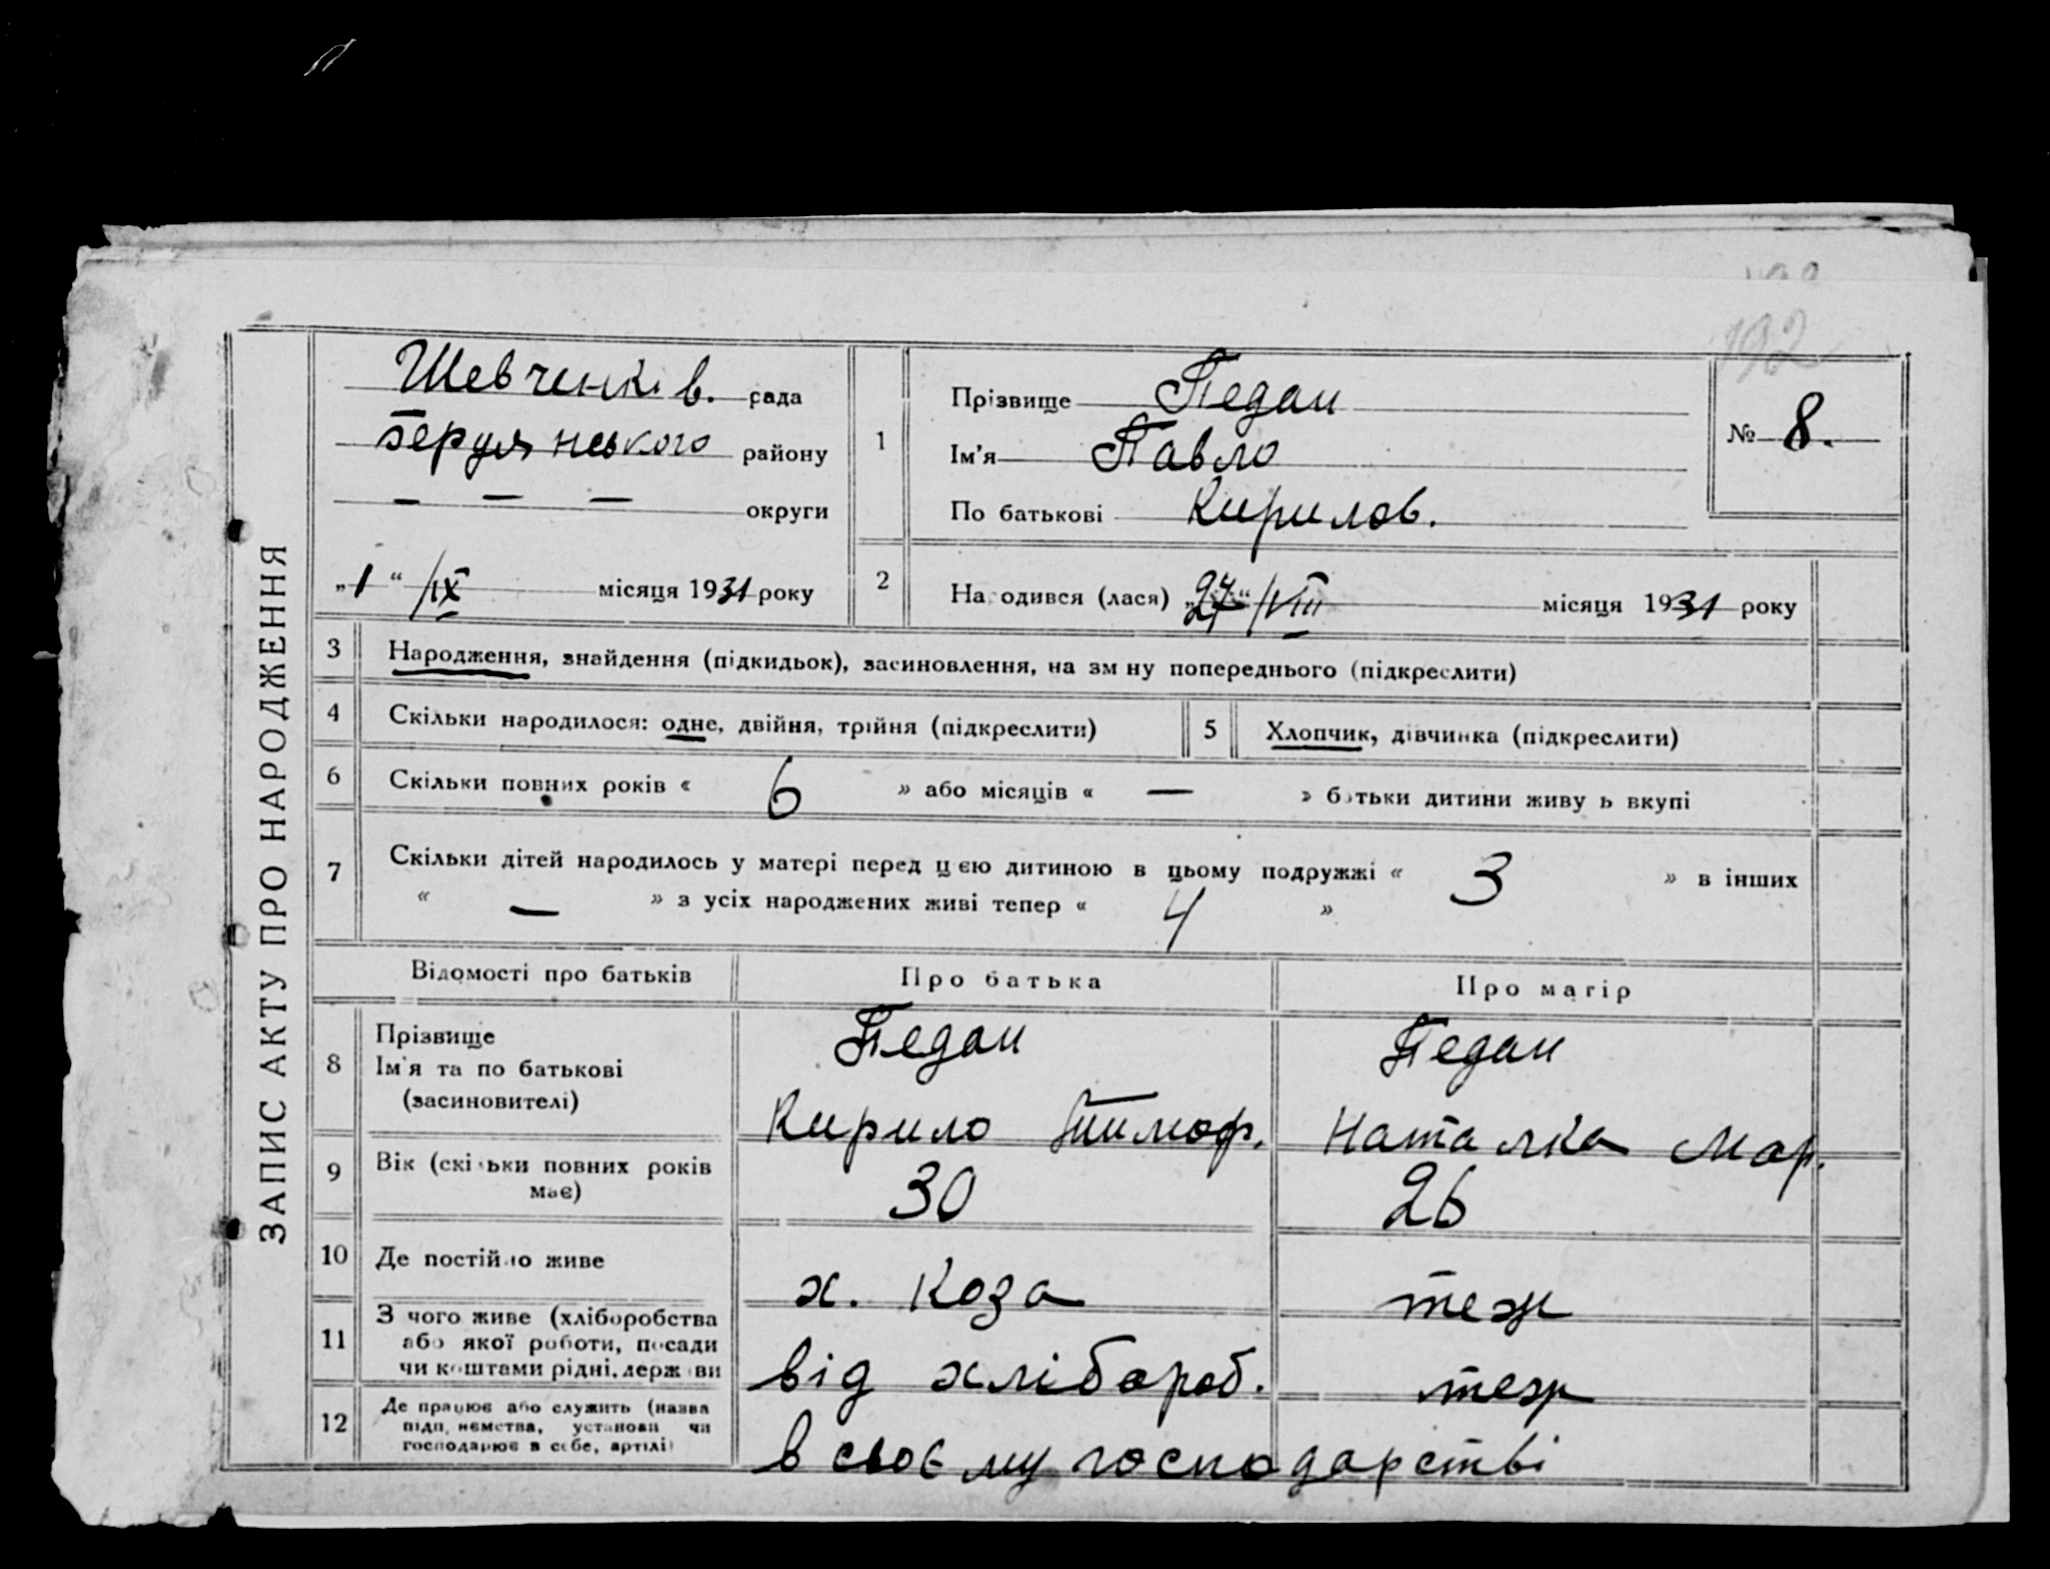 192
ЗАПИС АКТУ ПРО НАРОДЖЕННЯ
Шевченків. рада
Берулянського району
— — — округи
„1“ /IX місяця 1931 року
1
Прізвище Педан
Ім'я Павло
По батькові Кирилов.
№ 8.
2
На одився (лася) „27“ /VIII місяця 1931 року
3 Народження, знайдення (підкидьок), засиновлення, на зм ну попереднього (підкреслити)
4 Скільки народилося: одне, двійня, трійня (підкреслити)
5 Хлопчик, дівчинка (підкреслити)
6 Скільки повних років « 6 » або місяців « — » б тьки дитини живу ь вкупі
7 Скільки дітей народилось у матері перед цєю дитиною в цьому подружжі « 3 » в інших
« — » з усіх народжених живі тепер « 4 »
Відомості про батьків Про батька Про матір
8 Прізвище
Ім'я та по батькові
(засиновителі)
Педан
Кирило Тимоф.
Педан
Наталка Мар.
9 Вік (скі ьки повних років
має)
30
26
10 Де постій о живе
х. Коза
теж
11 З чого живе (хліборобства
або якої роботи, посади
чи коштами рідні, держ ви
від хлібороб.
теж
12 Де працює або служить (назва
підп ємства, установи чи
господарює в себе, артілі)
в своєму господарстві